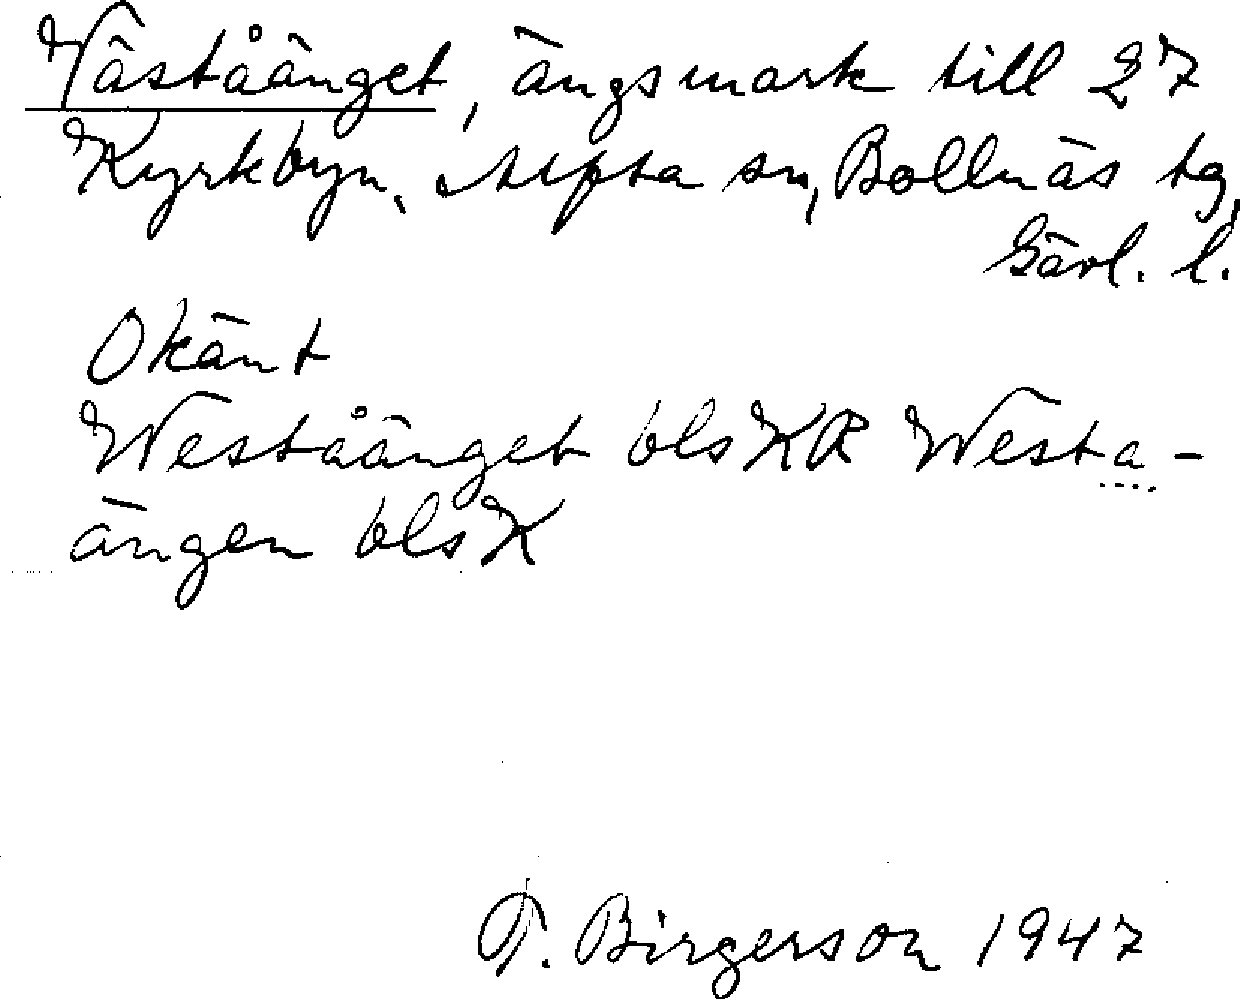 Väståänget, ängsmark till 27
Kyrkbyn, Alfta sn, Bollnäs tg,
Gävl. l.
Okänt
Weståänget blsKR Westa-
ängen blsK
T. Birgerson 1947